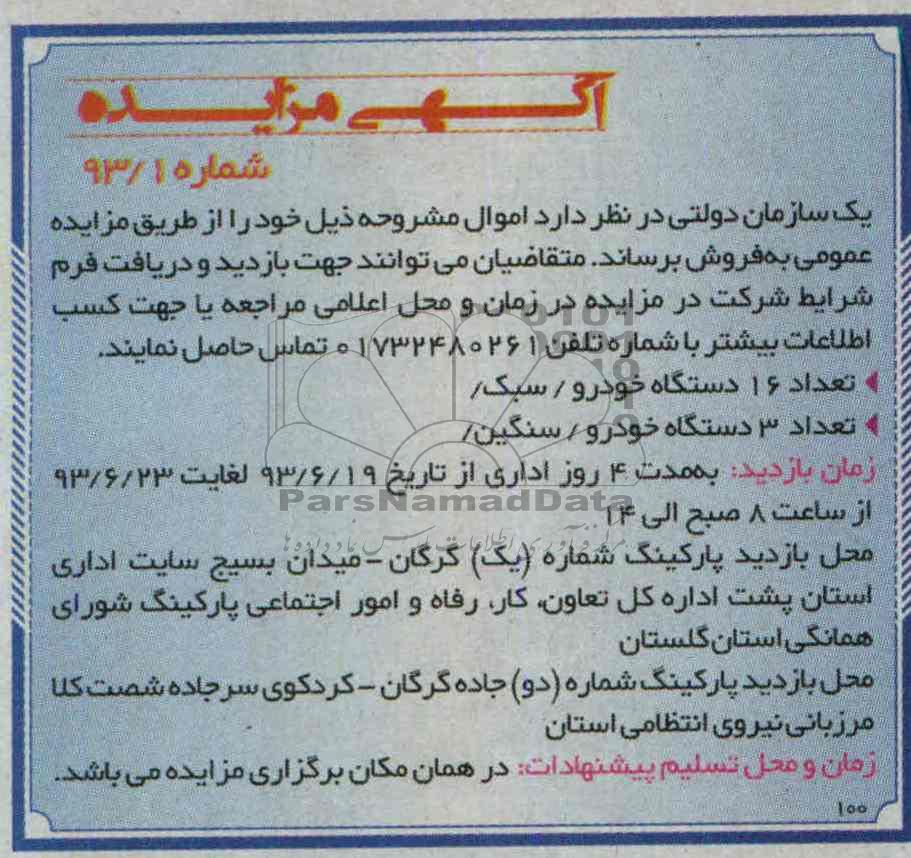 آگهی مزایده
شماره ۹۳/۱
یک سازمان دولتی در نظر دارد اموال مشروحه ذیل خود را از طریق مزایده
عمومی به‌فروش برساند. متقاضیان می توانند جهت بازدید و دریافت فرم
شرایط شرکت در مزایده در زمان و محل اعلامی مراجعه یا جهت کسب
اطلاعات بیشتر با شماره تلفن ۰۱۷۳۲۴۸۰۲۶۱ تماس حاصل نمایند.
تعداد ۱۶ دستگاه خودرو / سبک/
تعداد ۳ دستگاه خودرو / سنگین/
زمان بازدید: به‌مدت ۴ روز اداری از تاریخ ۹۳/۶/۱۹ لغایت ۹۳/۶/۲۳
ParsNamadData
از ساعت ۸ صبح الی ۱۴
محل بازدید پارکینگ شماره (یک) گرگان -میدان بسیج سایت اداری
استان پشت اداره کل تعاون، کار، رفاه و امور اجتماعی پارکینگ شورای
همانگی استان گلستان
محل بازدید پارکینگ شماره (دو) جاده گرگان -کردکوی سر جاده شصت کلا
مرزبانی نیروی انتظامی استان
زمان و محل تسلیم پیشنهادات: در همان مکان برگزاری مزایده می باشد.
۱۰۰